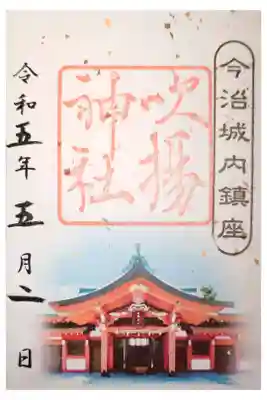 今治城内鎮座
吹揚神社
令和五年五月二日